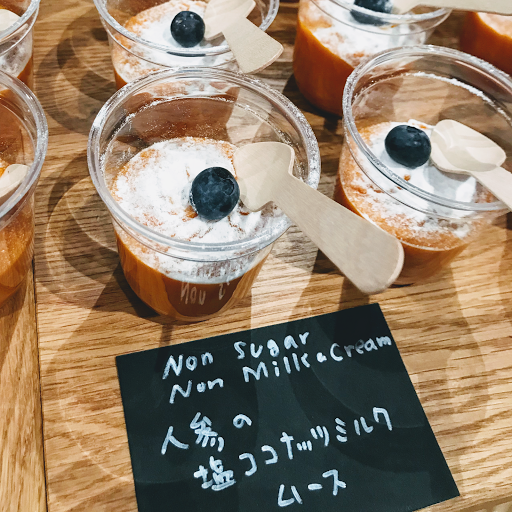 Non Sugar
Non Milk & Cream
人参の
塩ココナッツミルク
ムース